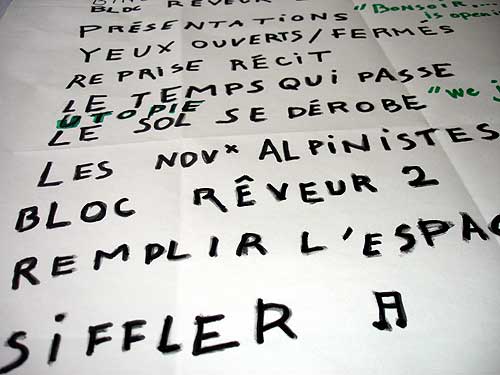 BLOC RÊVEUR
PRÉSENTATIONS "BONSOIR....
YEUX OUVERTS/FERMÉS
REPRISE RÉCIT
LE TEMPS QUI PASSE
UTOPIE
LE SOL SE DÉROBE "we
LES NOUVX ALPINISTES
BLOC RÊVEUR 2
REMPLIR L'ESPAC
SIFFLER